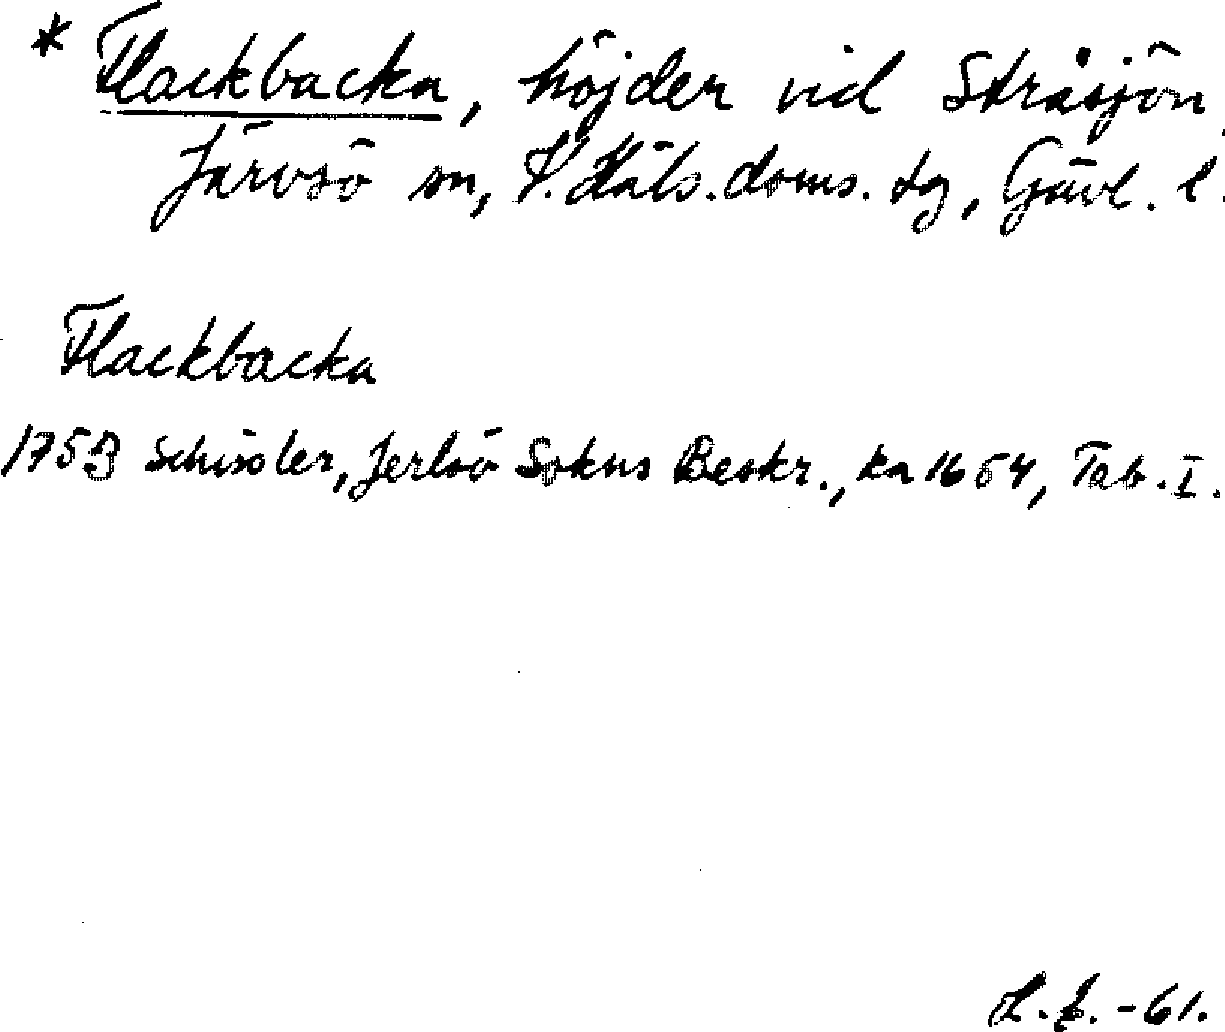 * Flackbacka, höjder vid Stråsjön,
Järvsö sn, V. Häls. doms. tg, Gävl. l.
Flackbacka
1753 Schissler, Jerfsö Sokns Beskr., ka 1654, Tab. I.
-61.